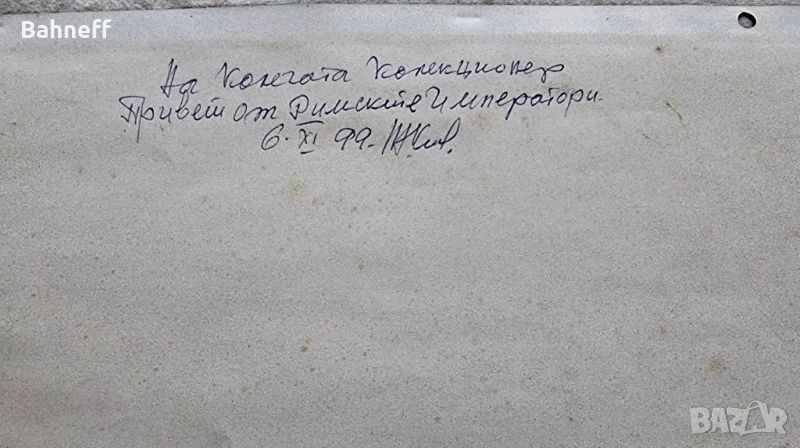 Bahneff
На Колегата Колекционер
Привет от Римските Императори.
6. XI 99.
BAZAR